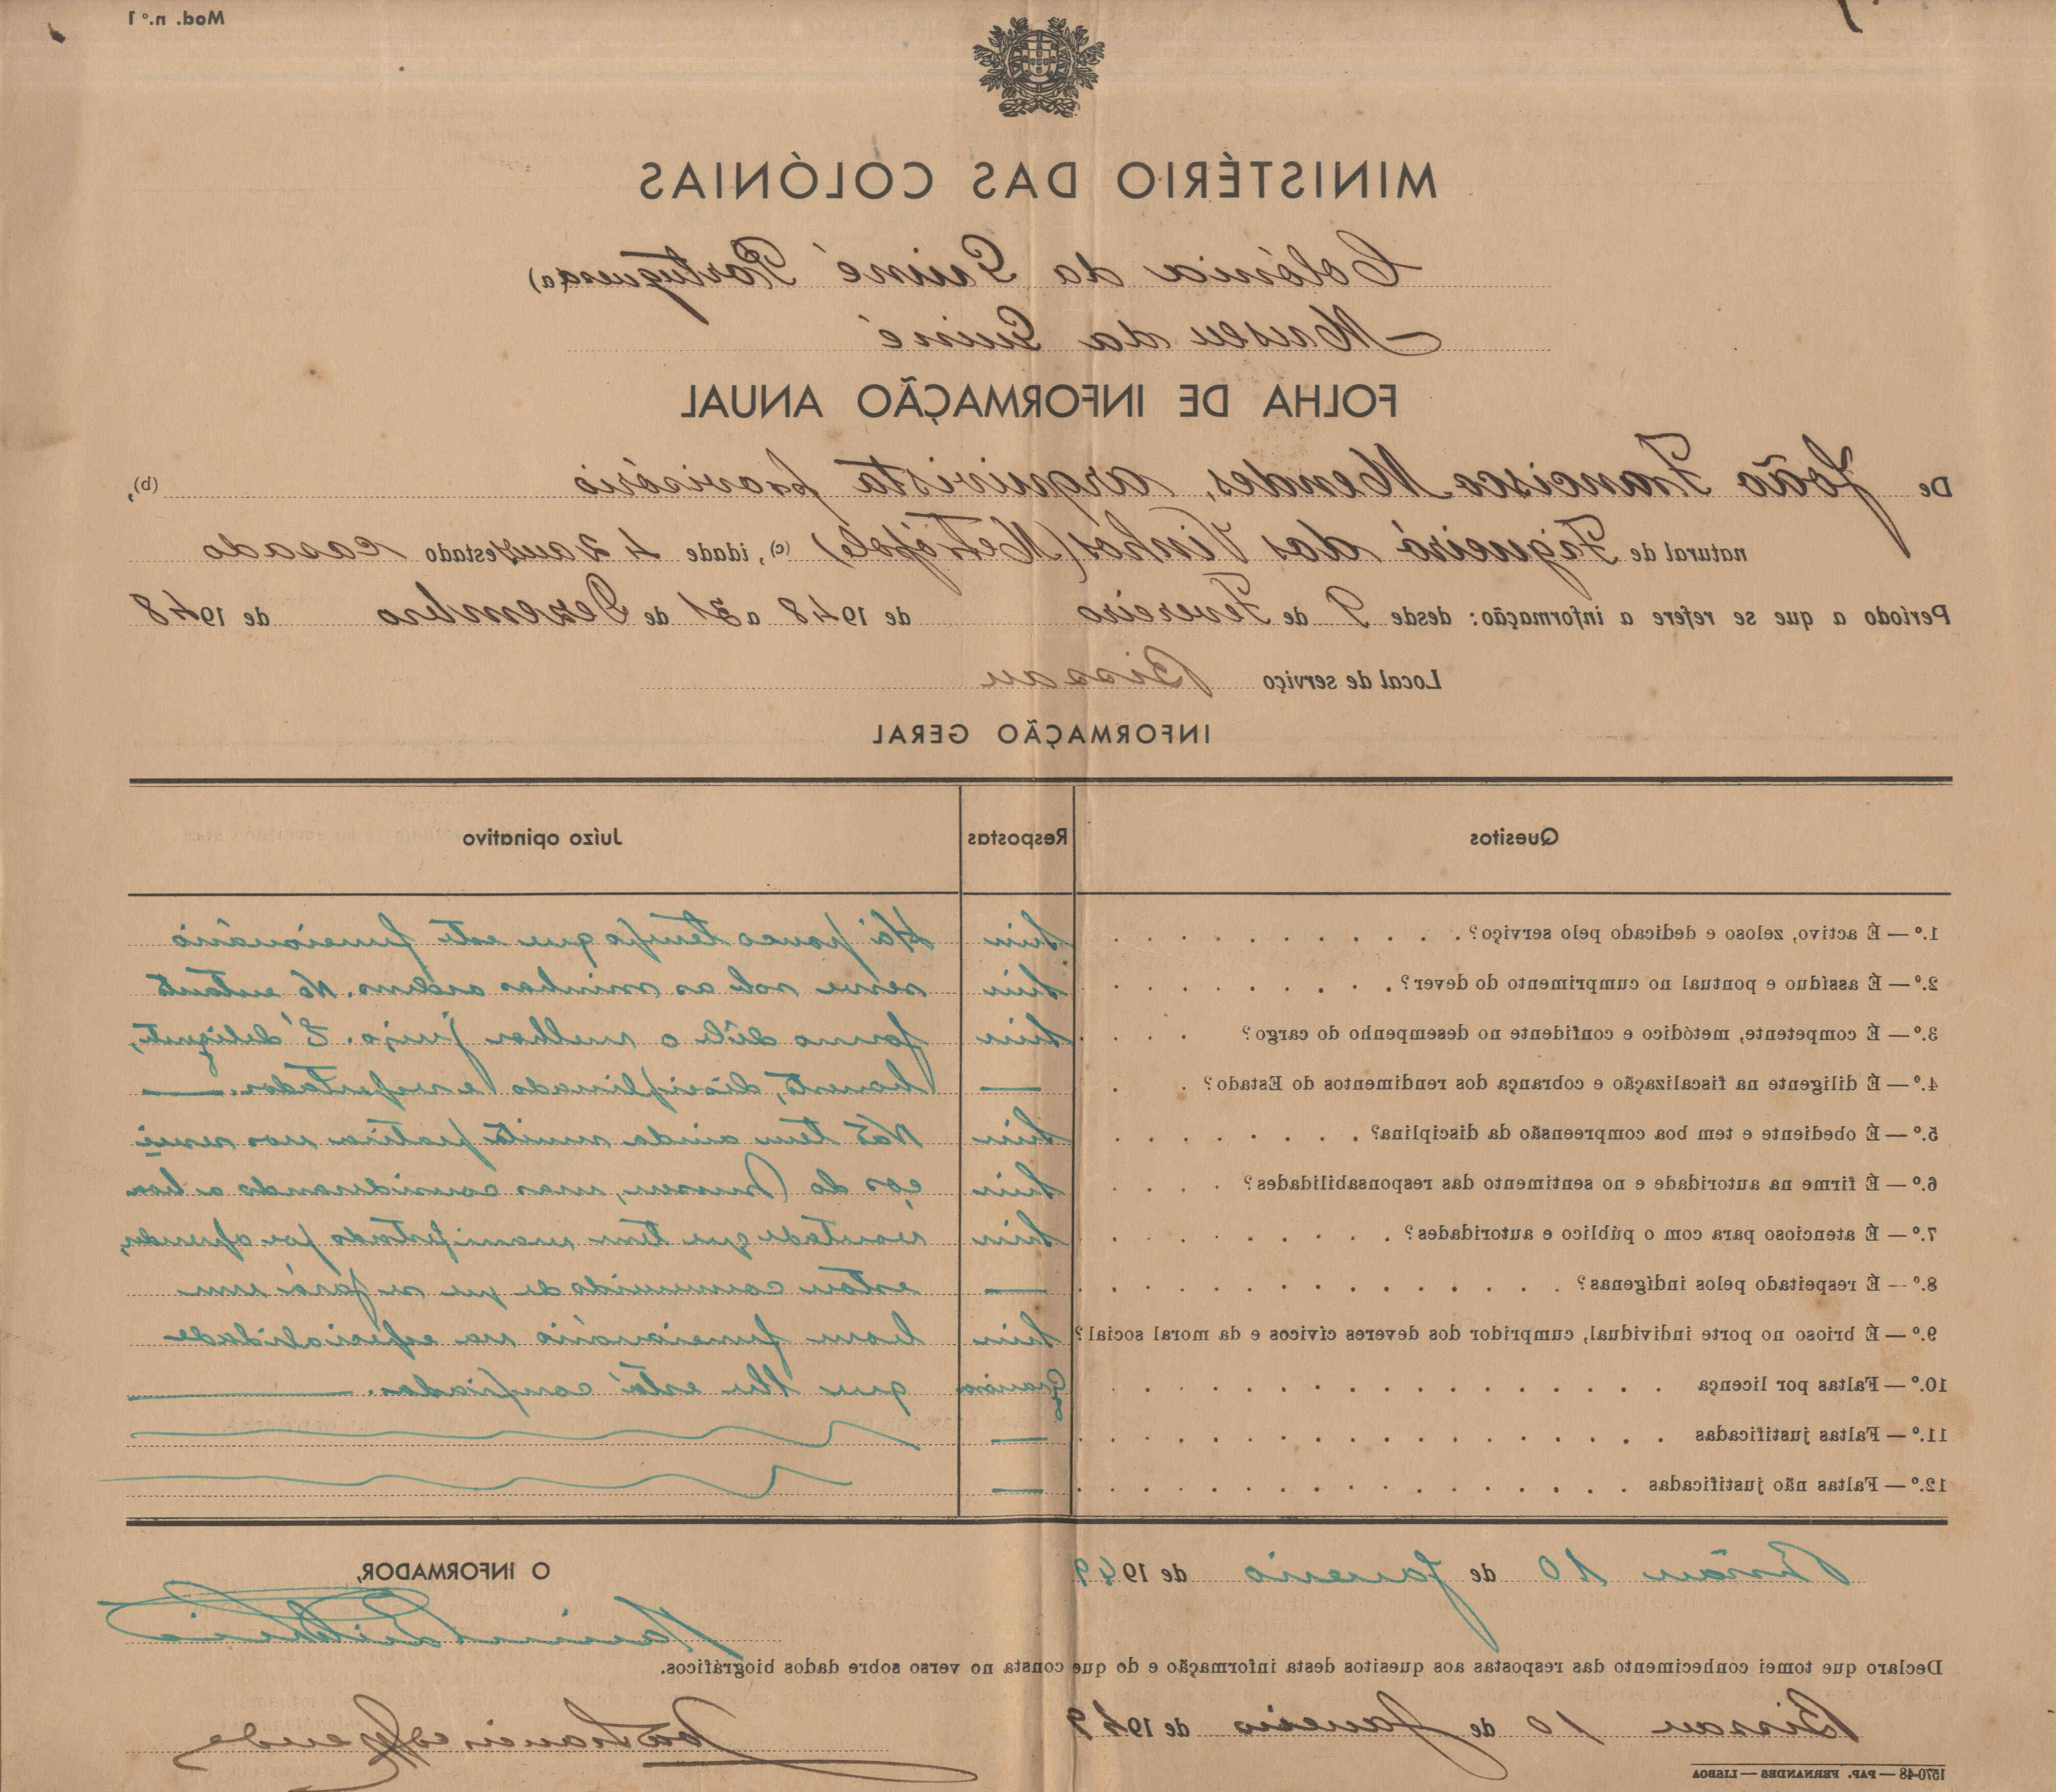 Mod. n.º 1
MINISTÉRIO DAS COLÓNIAS
Colónia da Guiné Portuguesa (a)
Museu da Guiné
FOLHA DE INFORMAÇÃO ANUAL
De João Francisco Mendes, arquivista provisório (b),
natural de Figueiró dos Vinhos (Metrópole) (c), idade 42 anos estado casado
Período a que se refere a informação: desde 9 de Fevereiro de 1948 a 31 de Dezembro de 1948
Local de serviço Bissau
INFORMAÇÃO GERAL
Quesitos Respostas Juízo opinativo
1.º — É activo, zeloso e dedicado pelo serviço? Sim Há pouco tempo que este funcionário
2.º — É assíduo e pontual no cumprimento do dever? Sim serve sob as minhas ordens. No entanto
3.º — É competente, metódico e confidente no desempenho do cargo? Sim formo dêle o melhor juizo. É deligente,
4.º — É diligente na fiscalização e cobrança dos rendimentos do Estado? — honesto, disciplinado e respeitador. —
5.º — É obediente e tem boa compreensão da disciplina? Sim Não tem ainda muita prática nos servi
6.º — É firme na autoridade e no sentimento das responsabilidades? Sim ços do Museu, mas considerando a boa
7.º — É atencioso para com o público e autoridades? Sim vontade que tem manifestado por aprender,
8.º — É respeitado pelos indígenas? — estou convencido de que se fará um
9.º — É brioso no porte individual, cumpridor dos deveres cívicos e da moral social? Sim bom funcionário na especialidade
10.º — Faltas por licença que lhe está confiada. —
11.º — Faltas justificadas —
12.º — Faltas não justificadas —
Bissau 10 de Janeiro de 1949 O INFORMADOR,
Declaro que tomei conhecimento das respostas aos quesitos desta informação e do que consta no verso sobre dados biográficos.
Bissau 10 de Janeiro de 1949 João Francisco Mendes
1570-48 — PAP. FERNANDES — LISBOA